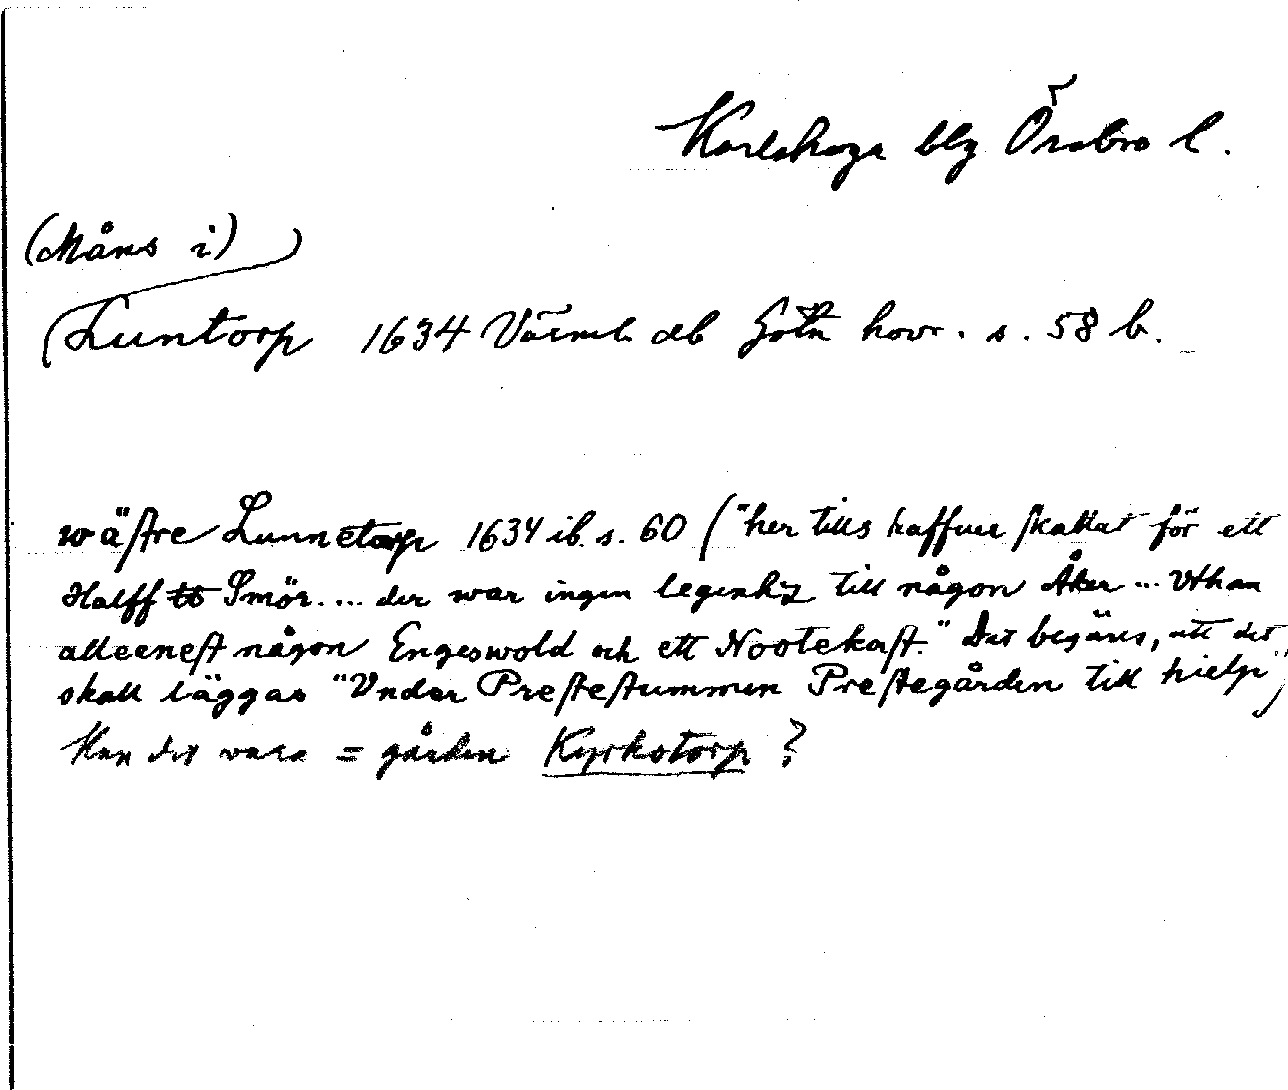 Karlskoga blg Örebro l.
(Måns i)
Luntorp 1634 Värml. db Göta hovr. s. 58 b.
wästre Lunnetorp 1634 ib. s. 60 ("her tills haffuer skattat för ett
Halff ℔ Smör.... der war ingen legenhz till någon Åker ... Vthan
alleenest någon Engeswold och ett Nootekast." Det begäres, att det
skall läggas "Vnder Prestestummen Prestegården till hielp")
Kan det vara = gården Kyrkotorp ?